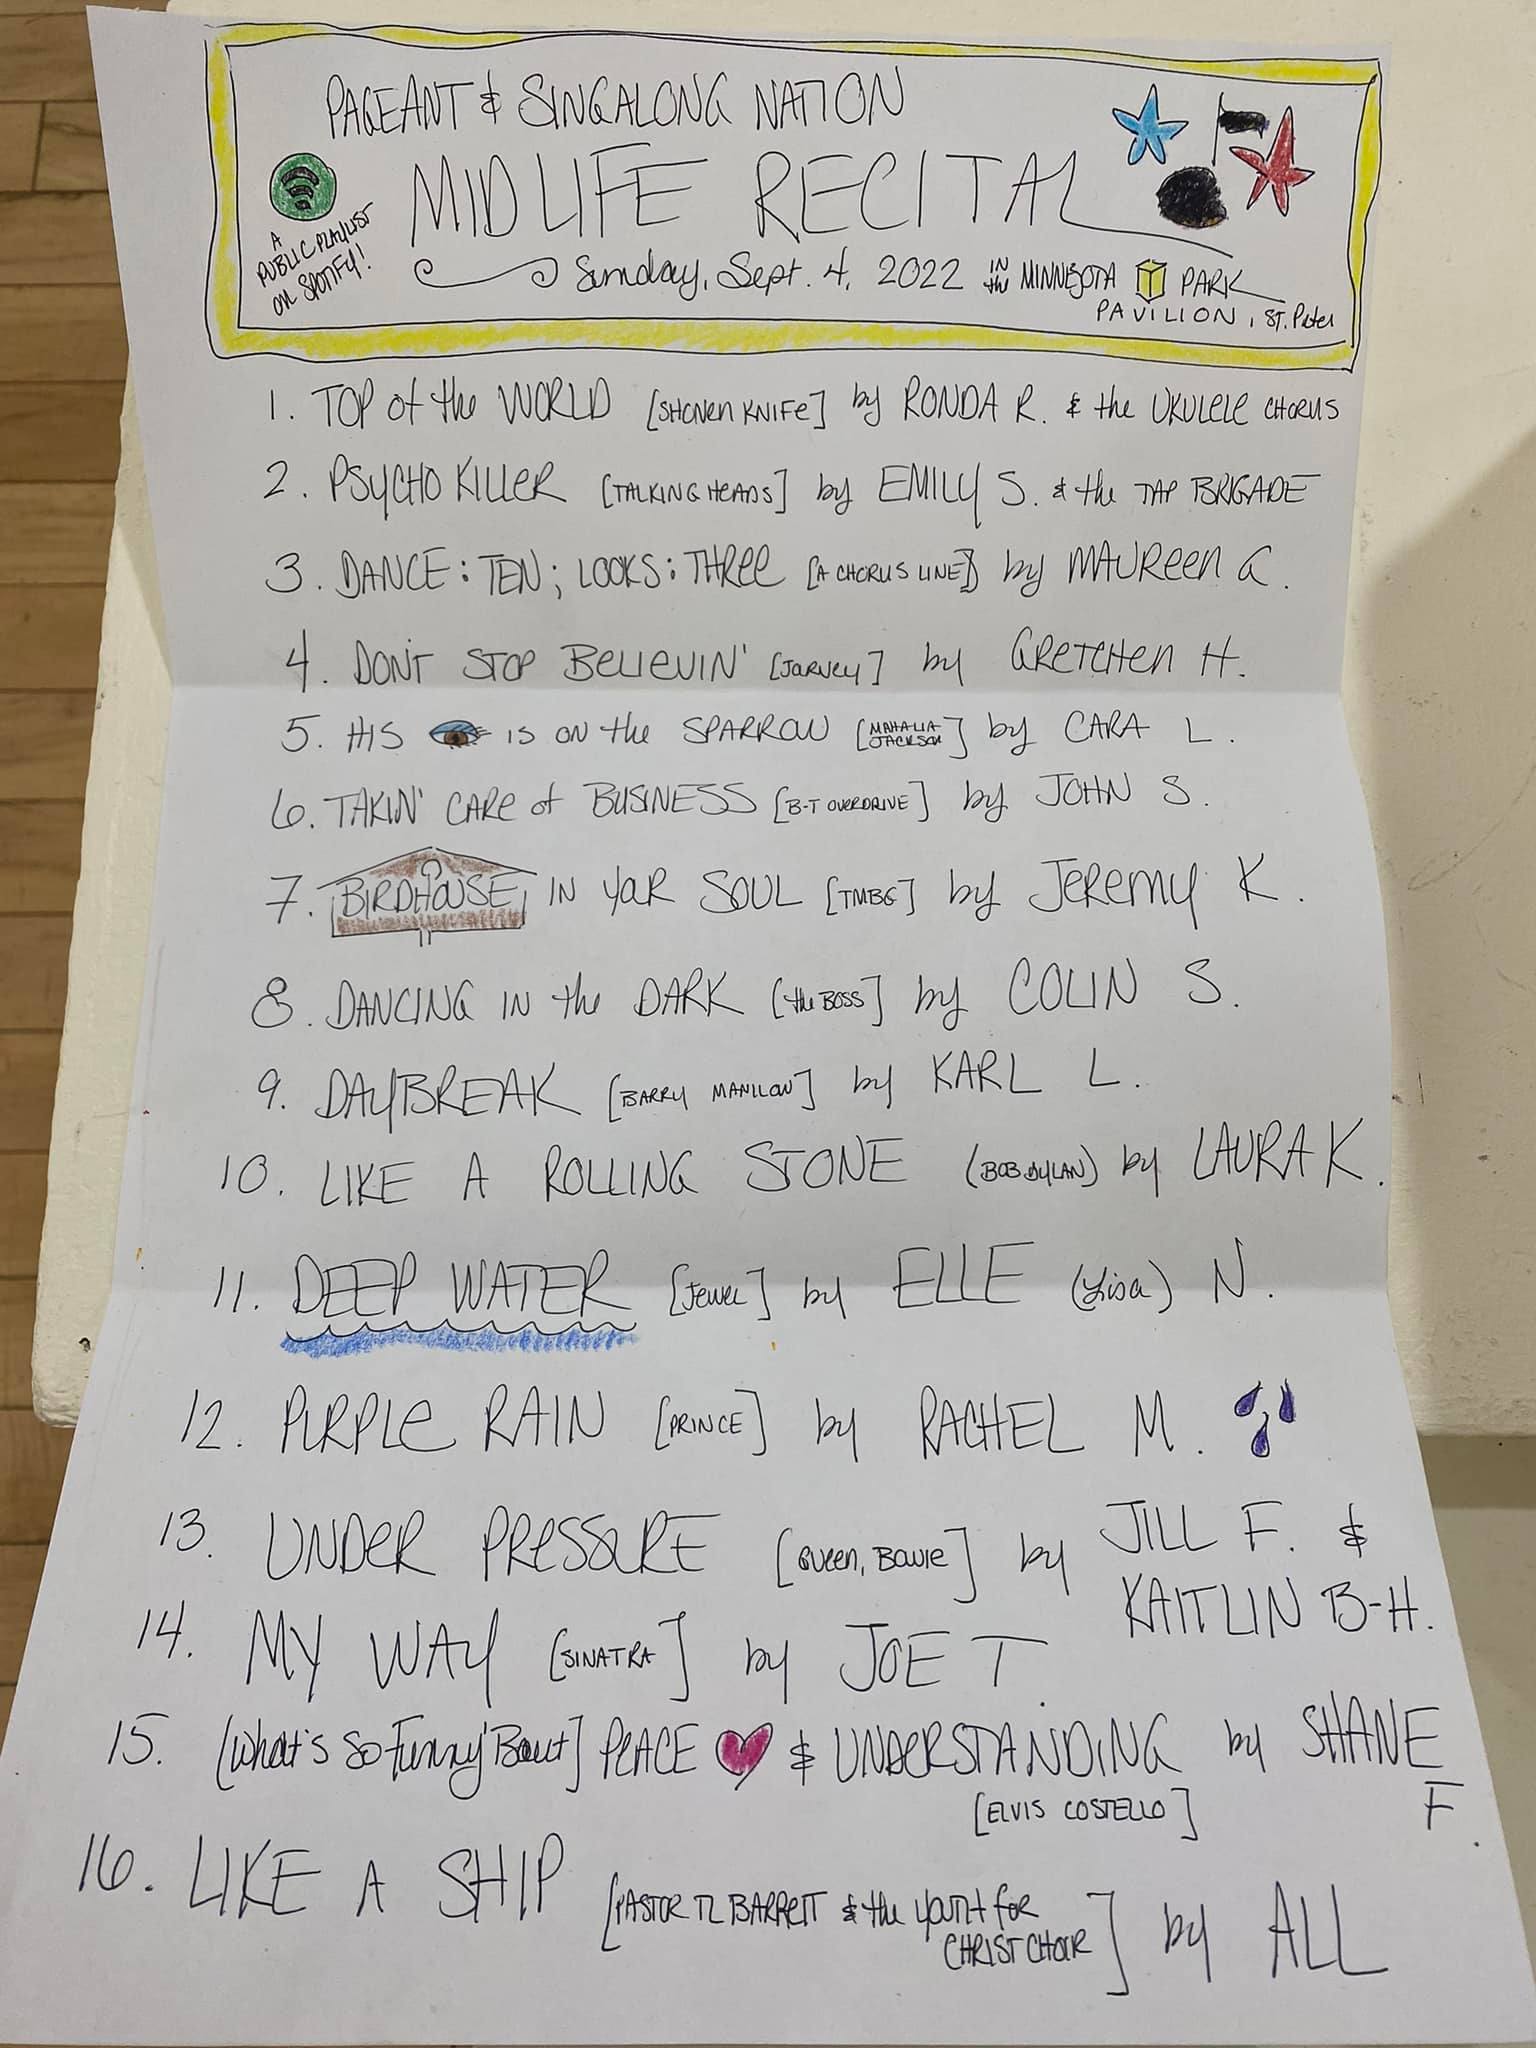 PAGEANT & SINGALONG NATION
MIDLIFE RECITAL
A
PUBLIC PLAYLIST
on SPOTIFY!
Sunday, Sept. 4, 2022 IN the MINNESOTA PARK
PAVILION, ST. Peter
1. TOP of the WORLD [SHONEN KNIFE] by RONDA R. & the UKULELE CHORUS
2. PSYCHO KILLER [TALKING HEADS] by EMILY S. & the TAP BRIGADE
3. DANCE: TEN; LOOKS: THREE [A CHORUS LINE] by MAUREEN G.
4. DON'T STOP BELIEVIN' [JOURNEY] by GRETCHEN H.
5. HIS IS ON the SPARROW [MAHALIA JACKSON] by CARA L.
6. TAKIN' CARE of BUSINESS [B-T OVERDRIVE] by JOHN S.
7. BIRDHOUSE IN YOUR SOUL [TMBG] by JEREMY K.
8. DANCING IN the DARK [the BOSS] by COLIN S.
9. DAYBREAK [BARRY MANILOW] by KARL L.
10. LIKE A ROLLING STONE (BOB DYLAN) by LAURA K.
11. DEEP WATER [JEWEL] by ELLE (Lisa) N.
12. PURPLE RAIN [PRINCE] by RACHEL M.
13. UNDER PRESSURE [QUEEN, BOWIE] by JILL F. &
KAITLIN B-H.
14. MY WAY [SINATRA] by JOE T.
15. [What's So Funny 'Bout] PEACE & UNDERSTANDING by SHANE
F.
[ELVIS COSTELLO]
16. LIKE A SHIP [PASTOR TL BARRETT & the YOUTH for
CHRIST CHOIR] by ALL